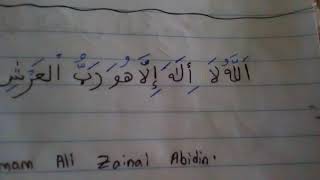 اَللّٰهُ لَا اِلَهَ اِلَّا هُوَ رَبُّ الْعَرْشِ
mam Ali Zainal Abidin.